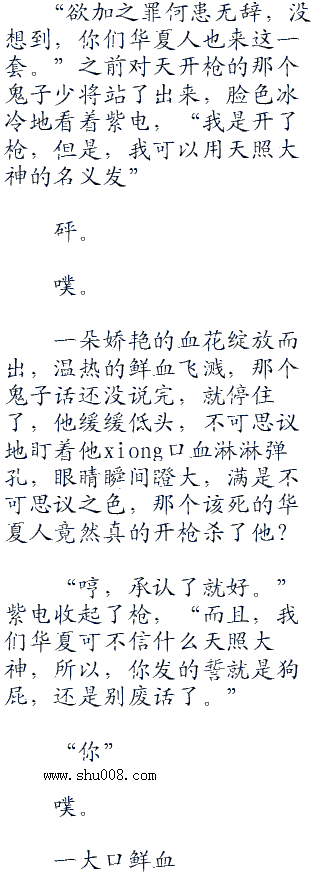 “欲加之罪何患无辞，没
想到，你们华夏人也来这一
套。”之前对天开枪的那个
鬼子少将站了出来，脸色冰
冷地看着紫电，“我是开了
枪，但是，我可以用天照大
神的名义发”
砰。
噗。
一朵娇艳的血花绽放而
出，温热的鲜血飞溅，那个
鬼子话还没说完，就停住
了，他缓缓低头，不可思议
地盯着他xiong口血淋淋弹
孔，眼睛瞬间蹬大，满是不
可思议之色，那个该死的华
夏人竟然真的开枪杀了他？
“哼，承认了就好。”
紫电收起了枪，“而且，我
们华夏可不信什么天照大
神，所以，你发的誓就是狗
屁，还是别废话了。”
“你”
www.shu008.com
噗。
一大口鲜血